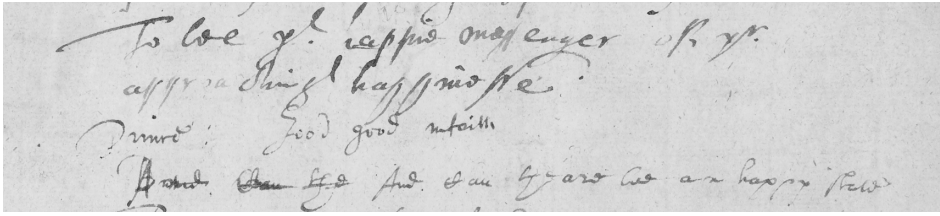 To bee yr. happie messenger of yr.
approaching happinesse.
Prince: Good good infaith
And can they are bee an happy